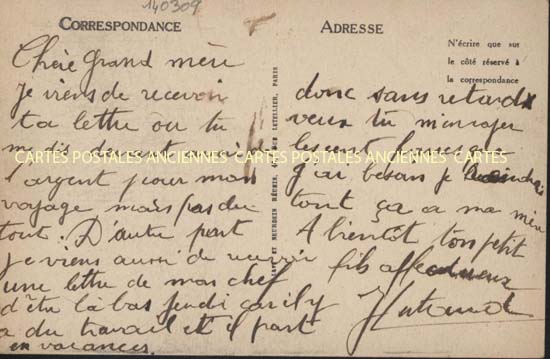 140309
CORRESPONDANCE
ADRESSE
N'écrire que sur
le côté réservé à
la correspondance
Chère Grand mère
Je viens de recevoir
ta lettre ou tu
me dis
l'argent pour mon
voyage mais pas du
tout. D'autre part
je viens aussi de recevoir
une lettre de mon chef
d'être là bas jeudi car il y
a du travail et il part
en vacances.
donc sans retard
veux tu m'envoyer
les cent francs que
j'ai besoin je
tout ça a ma mère
A bientôt ton petit
fils affectueux
CARTES POSTALES ANCIENNES CARTES POSTALES ANCIENNES CARTES
LETELLIER, PARIS